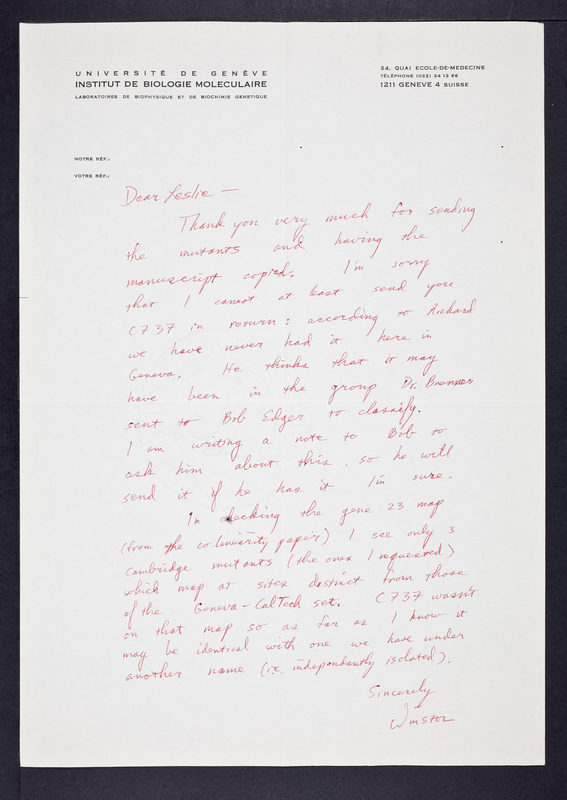 UNIVERSITÉ DE GENÈVE
INSTITUT DE BIOLOGIE MOLECULAIRE
LABORATOIRES DE BIOPHYSIQUE ET DE BIOCHIMIE GENETIQUE
24, QUAI ECOLE-DE-MEDECINE
TÉLÉPHONE (022) 24 12 88
1211 GENEVE 4 SUISSE
NOTRE RÉF.:
VOTRE RÉF.:
Dear Leslie —
Thank you very much for sending
the mutants and having the
manuscript copied. I'm sorry
that I cannot at least send you
C737 in return: according to Richard
we have never had it here in
Geneva. He thinks that it may
have been in the group Dr. Brenner
sent to Bob Edgar to classify.
I am writing a note to Bob to
ask him about this, so he will
send it if he has it I'm sure.
In checking the gene 23 map
(from the co-linearity paper) I see only 3
Cambridge mutants (the ones I requested)
which map at sites distinct from those
of the Geneva-CalTech set. C737 wasn't
on that map so as far as I know it
may be identical with one we have under
another name (i.e. independantly isolated).
Sincerely
Winston